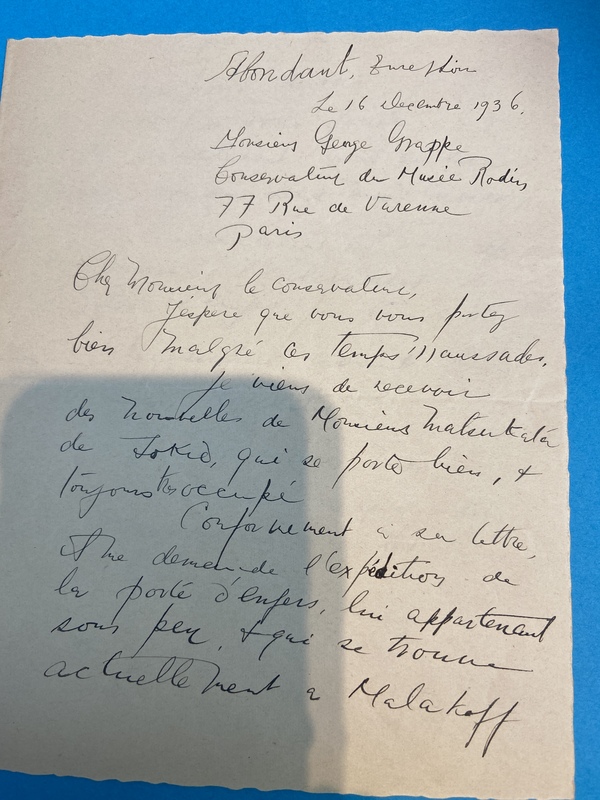 Abondant, Eure & Loir
Le 16 Decembre 1936.
Monsieur George Grappe
Conservateur du Musée Rodin
77 Rue de Varenne
Paris
Cher Monsieur le conservateur,
J'espere que vous vous portez
bien malgré ces temps maussades.
Je viens de recevoir
des nouvelles de Monsieur Matsukata
de Tokio, qui se porte bien, &
toujours tres occupé
Conformement a sa lettre,
Il me demande l'expédition de
la porte d'enfers, lui appartenant
sous peu, & qui se trouve
actuellement a Malakoff